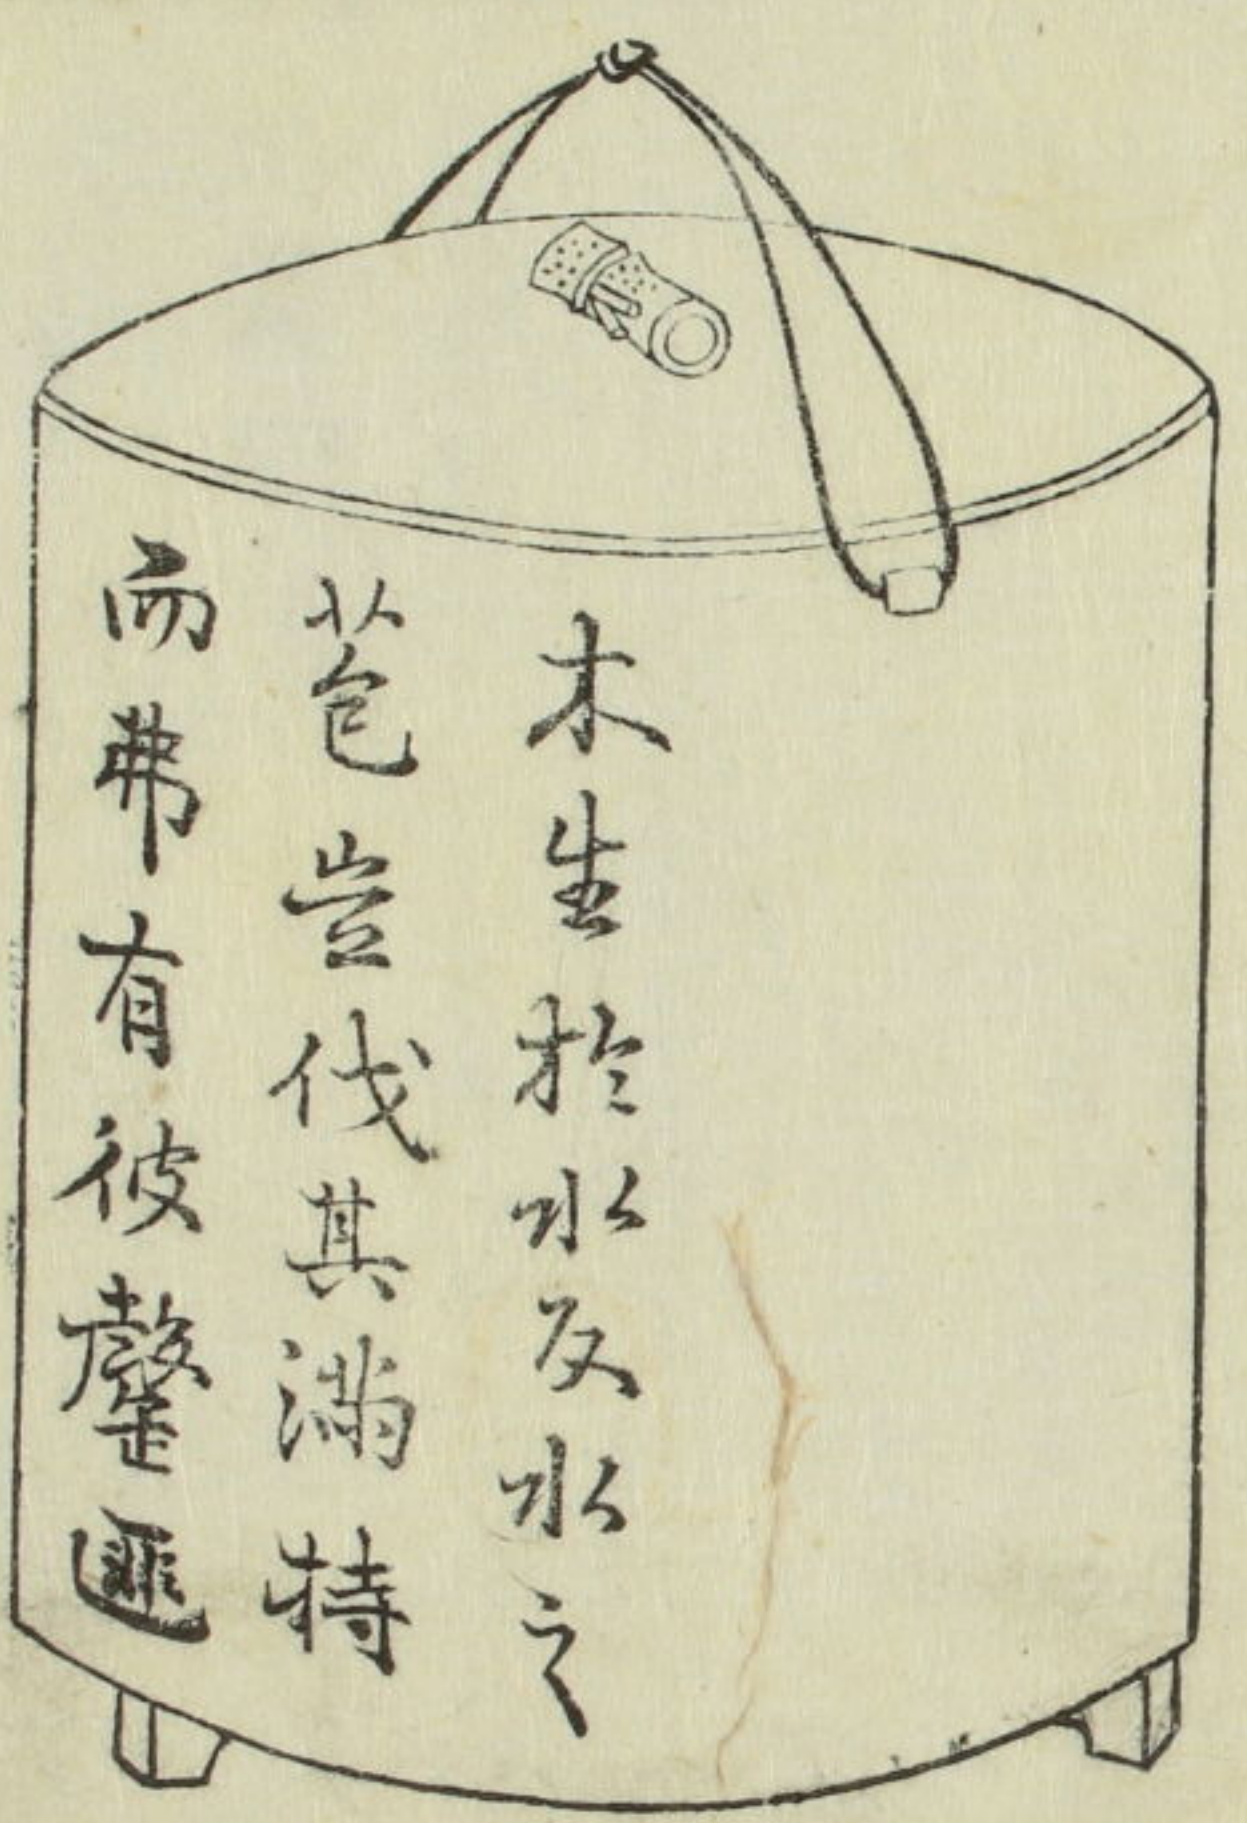 木生於水反水之
苞豈伐其滿持
而弗有彼罄匪